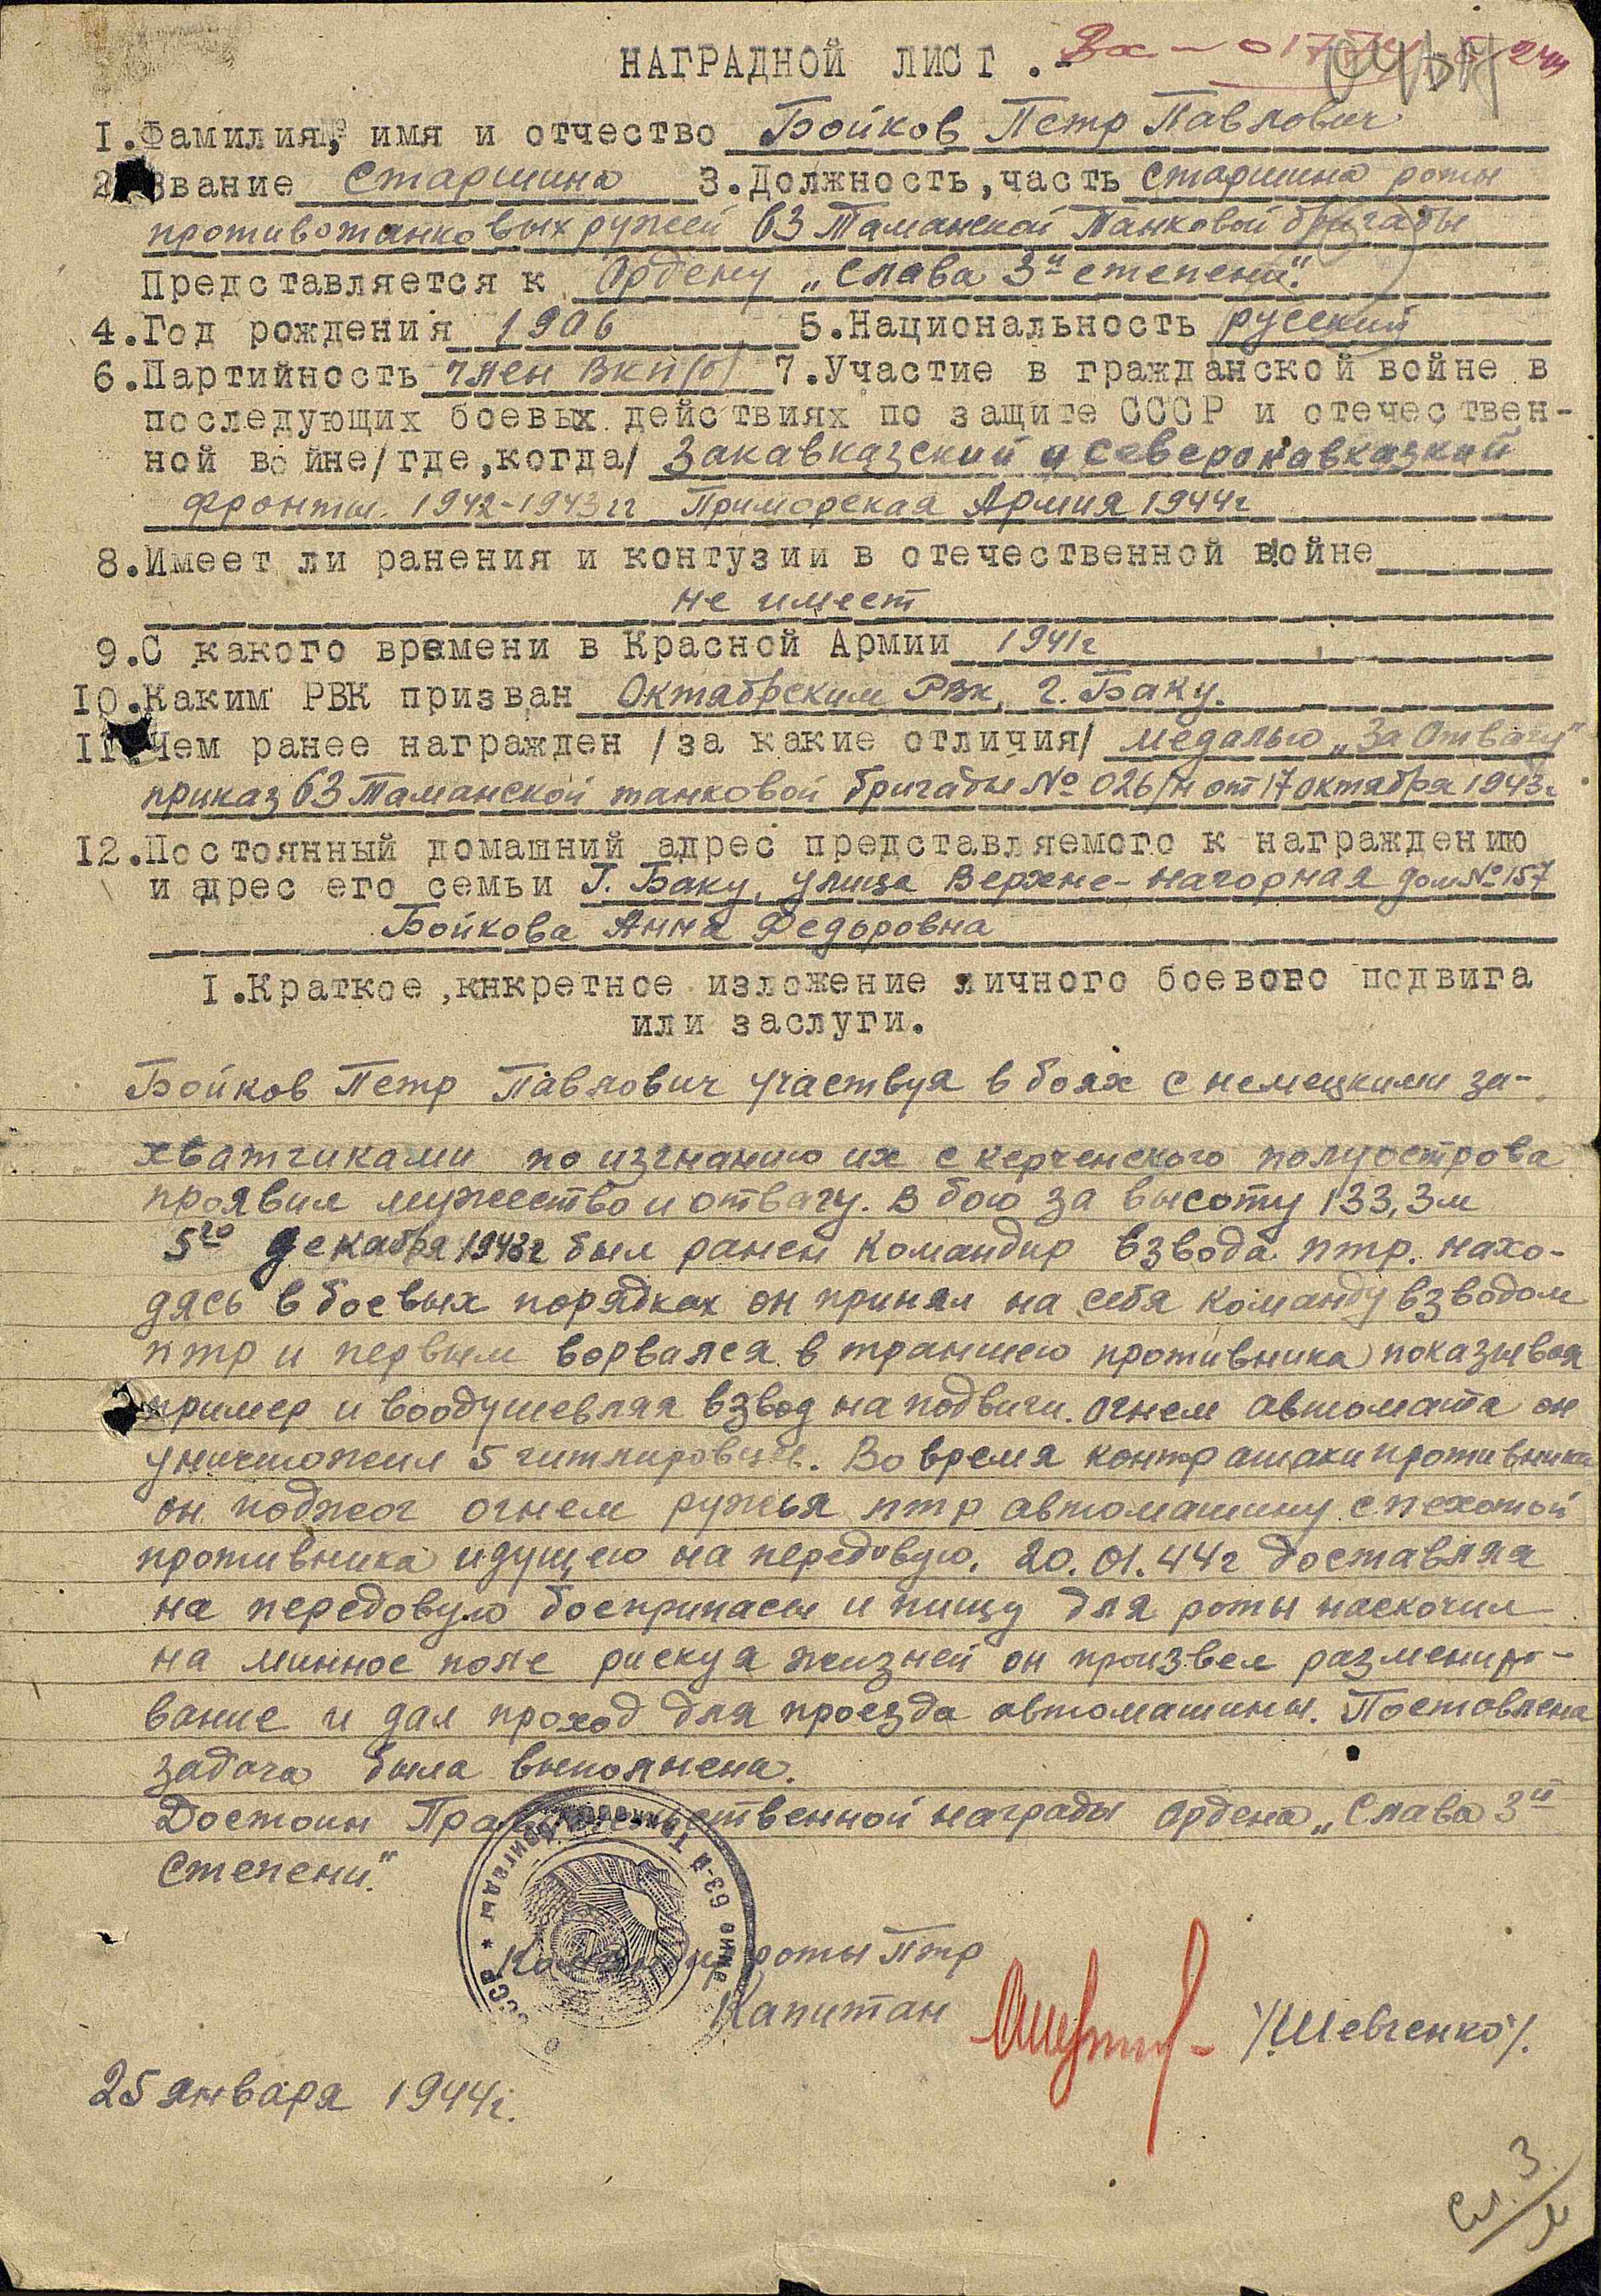 НАГРАДНОЙ ЛИСТ .-
1.Фамилия, имя и отчество Бойков Петр Павлович
2.Звание Старшина 3.Должность,часть Старшина роты
противотанковых ружей 63 Таманской Танковой бригады
Представляется к Ордену „Слава 3й степени".
4.Год рождения 1906 5.Национальность русский
6.Партийность член ВКП(б) 7.Участие в гражданской войне в
последующих боевых действиях по защите СССР и отечествен-
ной войне/где,когда/ Закавказский и северокавказкий
фронты 1942-1943гг Приморская Армия 1944г
8.Имеет ли ранения и контузии в отечественной войне
не имеет
9.С какого времени в Красной Армии 1941г
10.Каким РВК призван Октябрьским РВК, г. Баку.
11.Чем ранее награжден /за какие отличия/ медалью „За Отвагу"
приказ 63 Таманской танковой бригады № 026/н от 17 октября 1943г
12.Постоянный домашний адрес представляемого к награждению
и адрес его семьи Г. Баку, улица Верхне-нагорная дом № 157
Бойкова Анна Федоровна
I.Краткое,кнкретное изложение личного боевого подвига
или заслуги.
Бойков Петр Павлович участвуя в боях с немецкими за-
хватчиками по изгнанию их с керченского полуострова
проявил мужество и отвагу. В бою за высоту 133,3м
5го декабря 1943г был ранен командир взвода птр. нахо-
дясь в боевых порядках он принял на себя команду взводом
птр и первым ворвался в траншею противника показывая
пример и воодушевляя взвод на подвиги. Огнем автомата он
уничтожил 5 гитлировцев. Во время контратаки противника
он поджог огнем ружья птр автомашину с пехотой
противника идущею на передовую. 20.01.44г доставляя
на передовую боеприпасы и пищу для роты наскочил
на минное поле рискуя жизней он произвел размениро-
вание и дал проход для проезда автомашины. Поставлена
задача была выполнена.
Достоин Правительственной награды Ордена „Слава 3й
Степени".
Командир роты Птр
Капитан /Шевченко/.
25 января 1944г.